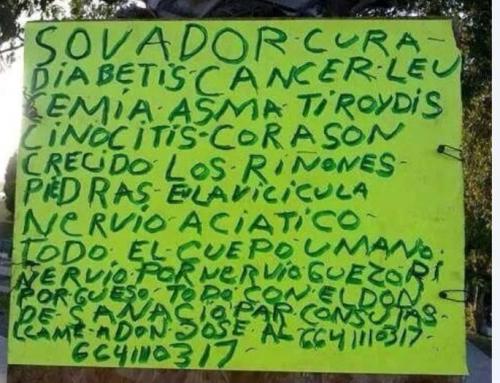 SOVADOR-CURA-
DIABETIS CANCER-LEU
CEMIA-ASMA TIROYDIS
CINOCITIS-CORASON
CRECIDO LOS RIÑONES-
PIEDRAS-ENLAVICICULA
NERVIO ACIATICO-
TODO EL CUEPO UMANO.
NERVIO POR NERVIO GUEZO RI
PORGUESO-TODO CON EL DON
DE SANACIO PAR CONSUTAS-
LLAME ADON JOSE AL 6641110317-
6641110317-